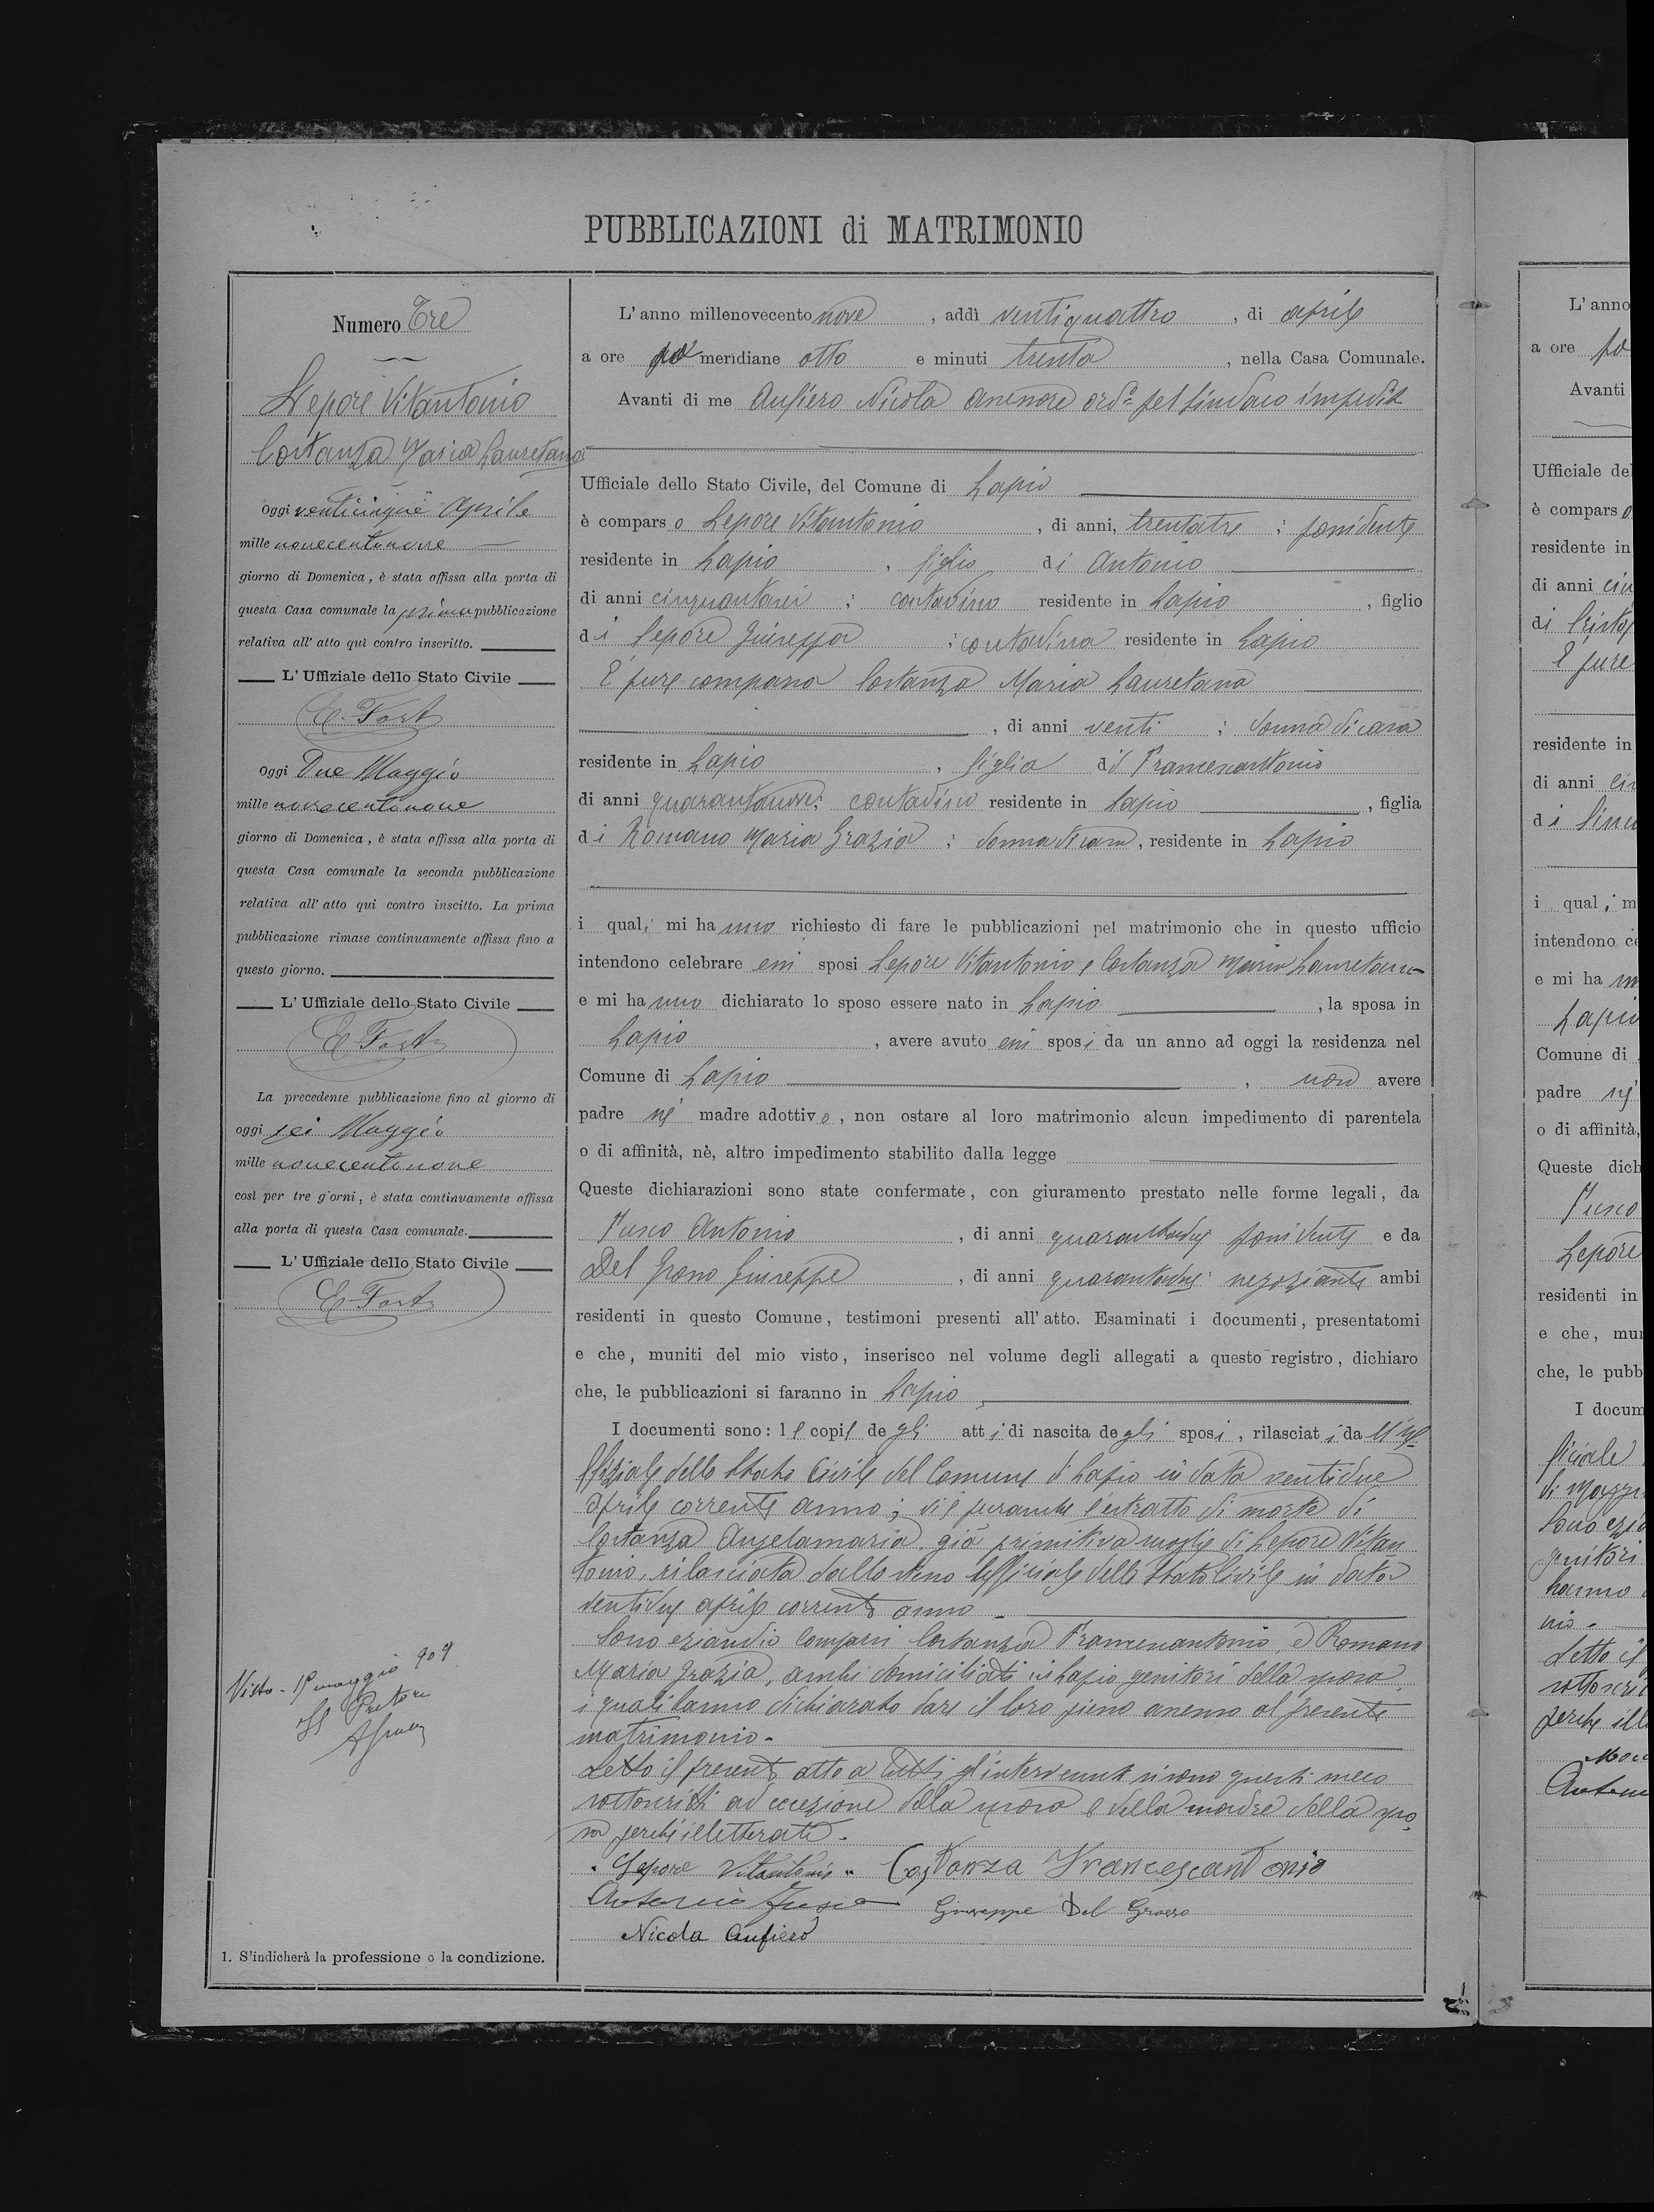 PUBBLICAZIONI di MATRIMONIO
Numero Tre
Lepore Vitantonio
Costanza Maria Lauretana
Oggi venticinque Aprile
mille novecentonove
giorno di Domenica, è stata affissa alla porta di
questa Casa comunale la prima pubblicazione
relativa all'atto quì contro inscritto.
L'Uffiziale dello Stato Civile
Oggi Due Maggio
mille novecentonove
giorno di Domenica, è stata affissa alla porta di
questa Casa comunale la seconda pubblicazione
relativa all'atto qui contro inscitto. La prima
pubblicazione rimase continuamente affissa fino a
questo giorno.
L'Uffiziale dello Stato Civile
La precedente pubblicazione fino al giorno di
oggi sei Maggio
mille novecentonove
così per tre giorni, è stata continuamente affissa
alla porta di questa Casa comunale.
L'Uffiziale dello Stato Civile
Visto - maggio 909
Il Pretore
1. S'indicherà la professione o la condizione.
L'anno millenovecento nove, addì ventiquattro, di aprile
a ore meridiane otto e minuti trenta, nella Casa Comunale.
Avanti di me Aufiero Nicola assessore ord.º pel sindaco impedito
Ufficiale dello Stato Civile, del Comune di Lapio
è comparso Lepore Vitantonio, di anni, trentatre; possidente
residente in Lapio, figlio di Antonio
di anni cinquantasei; contadino residente in Lapio, figlio
di Lepore Giuseppa; contadina residente in Lapio
È pure comparsa Costanza Maria Lauretana
, di anni venti; donna di casa
residente in Lapio, figlia di Francescantonio
di anni quarantanove; contadino residente in Lapio, figlia
di Romano Maria Grazia; donna di casa, residente in Lapio
i quali mi hanno richiesto di fare le pubblicazioni pel matrimonio che in questo ufficio
intendono celebrare essi sposi Lepore Vitantonio e Costanza Maria Lauretana
e mi hanno dichiarato lo sposo essere nato in Lapio, la sposa in
Lapio, avere avuto essi sposi da un anno ad oggi la residenza nel
Comune di Lapio, non avere
padre nè madre adottivo, non ostare al loro matrimonio alcun impedimento di parentela
o di affinità, nè, altro impedimento stabilito dalla legge
Queste dichiarazioni sono state confermate, con giuramento prestato nelle forme legali, da
Fusco Antonio, di anni quarantadue possidente e da
Del Grosso Giuseppe, di anni quarantadue negoziante ambi
residenti in questo Comune, testimoni presenti all'atto. Esaminati i documenti, presentatomi
e che, muniti del mio visto, inserisco nel volume degli allegati a questo registro, dichiaro
che, le pubblicazioni si faranno in Lapio
I documenti sono: le copie degli atti di nascita degli sposi, rilasciati da
ffiziale dello Stato Civile del Comune di Lapio in data ventidue
aprile corrente anno; vi è puranche l'estratto di morte di
Costanza Angelamaria già primitiva moglie di Lepore Vitan
tonio, rilasciata dallo stesso Ufficiale dello Stato Civile in data
ventidue aprile corrente anno
Sono eziandio comparsi Costanza Francescantonio, e Romano
Maria Grazia, ambi domiciliati in Lapio genitori della sposa,
i quali hanno dichiarato dare il loro pieno assenso al presente
matrimonio.
Letto il presente atto a tutti gl'intervenuti si sono questi meco
sottoscritti ad eccezione della sposa e della madre della spo
sa perchè illetterate.
Lepore Vitantonio. Costanza Francescantonio
Antonio Fusco Giuseppe Del Grosso
Nicola Aufiero
L'anno
a ore
Avanti
Ufficiale del
è comparso
residente in
di anni
di
È pure
residente in
di anni
di
i quali m
intendono ce
e mi ha
Lapio
Comune di
padre nè
o di affinità,
Queste dich
Fusco
Lepore
residenti in
e che, mun
che, le pubb
I docum
ficiale
Sono ezia
genitori
hanno
nio.
Letto il
sottoscri
perchè ill